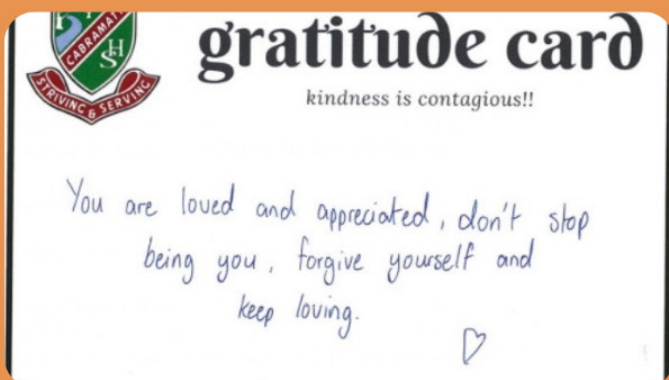 CABRAMAT
HS
STRIVING & SERVING
gratitude card
kindness is contagious!!
You are loved and appreciated, don't stop
being you, forgive yourself and
keep loving.